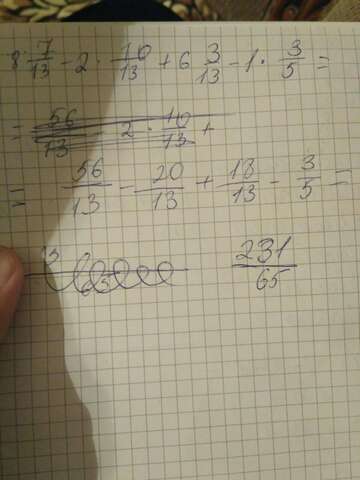 8 · 7/13 - 2 · 10/13 + 6 3/13 - 1 · 3/5 =
= 56/13 - 2 · 10/13 +
= 56/13 - 20/13 + 18/13 - 3/5 =
231/65